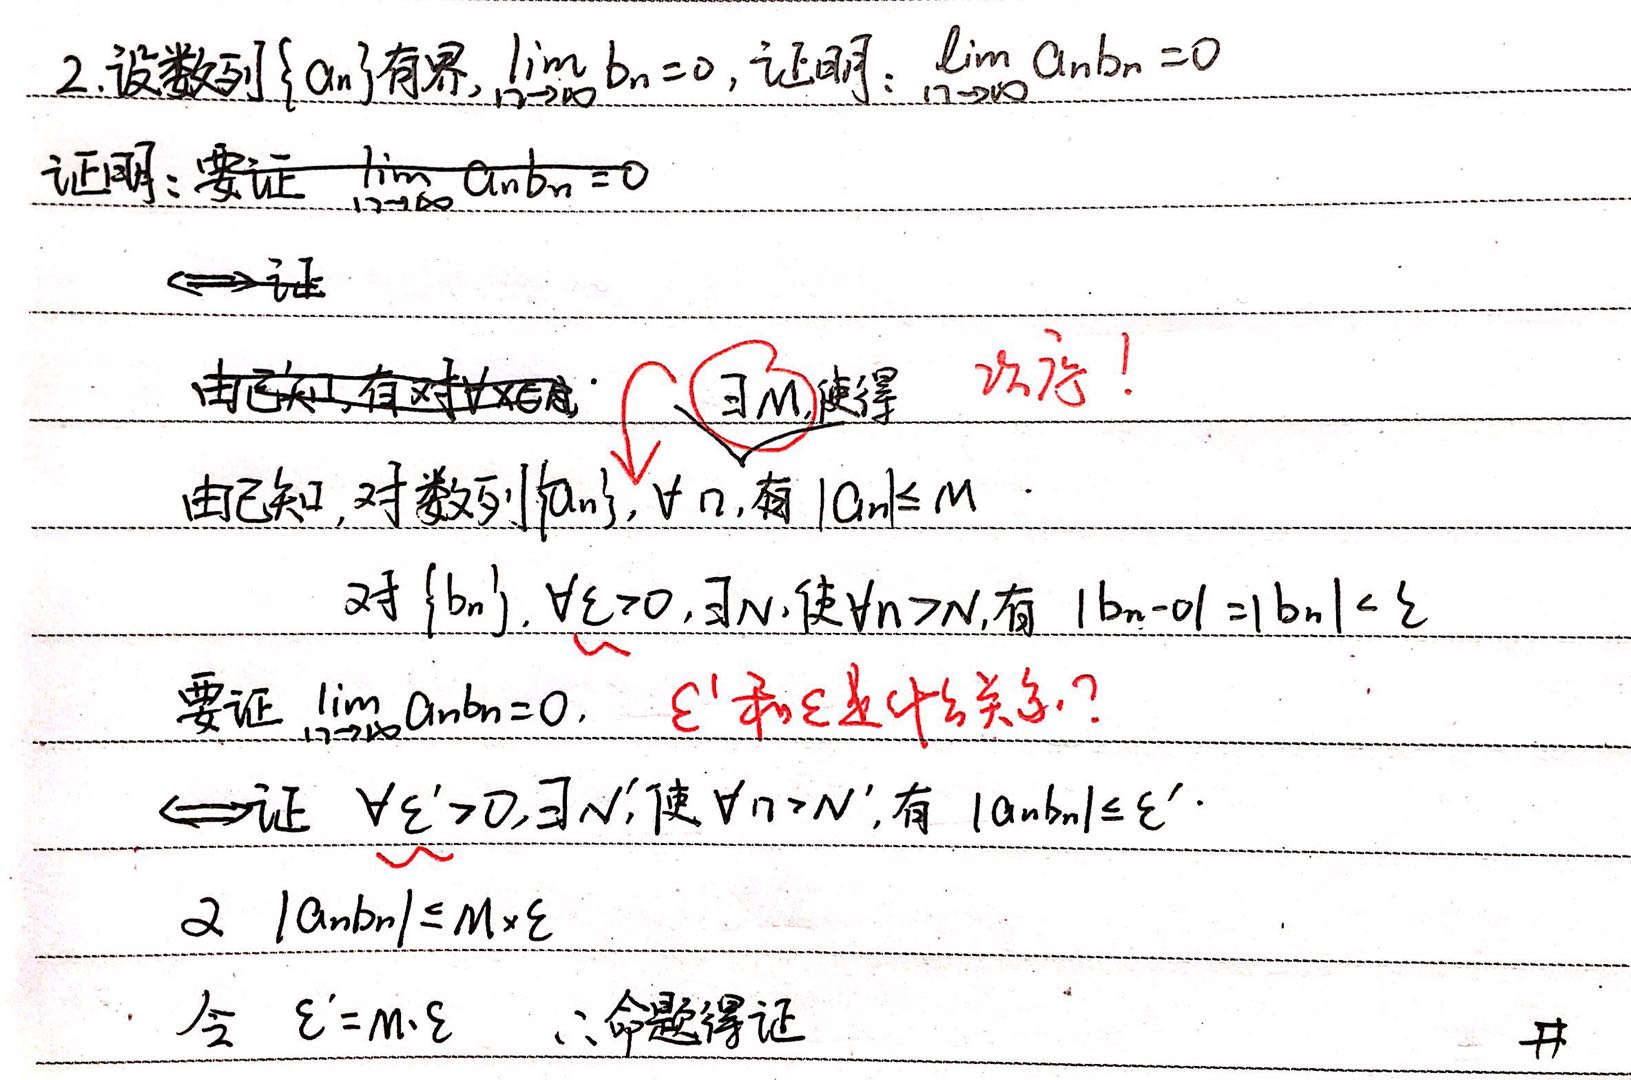 2.设数列{an}有界, lim n→∞ bn=0, 证明: lim n→∞ anbn=0
证明: 要证 lim n→∞ anbn=0
⟺证
由已知,有对∀x∈ ∃M,使得 次序!
由已知,对数列{an},∀n,有|an|≤M
对{bn},∀ε>0,∃N,使∀n>N,有 |bn-0|=|bn|<ε
要证 lim n→∞ anbn=0. ε'和ε是什么关系?
⟺证 ∀ε'>0,∃N',使∀n>N',有 |anbn|≤ε'.
又 |anbn|≤M×ε
令 ε'=M·ε ∴命题得证 #